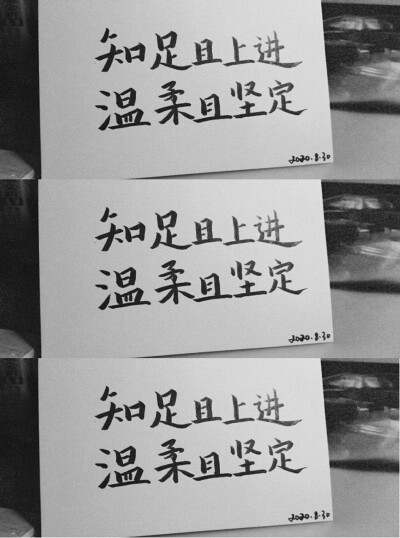 知足且上进
温柔且坚定
2020.8.30
知足且上进
温柔且坚定
2020.8.30
知足且上进
温柔且坚定
2020.8.30